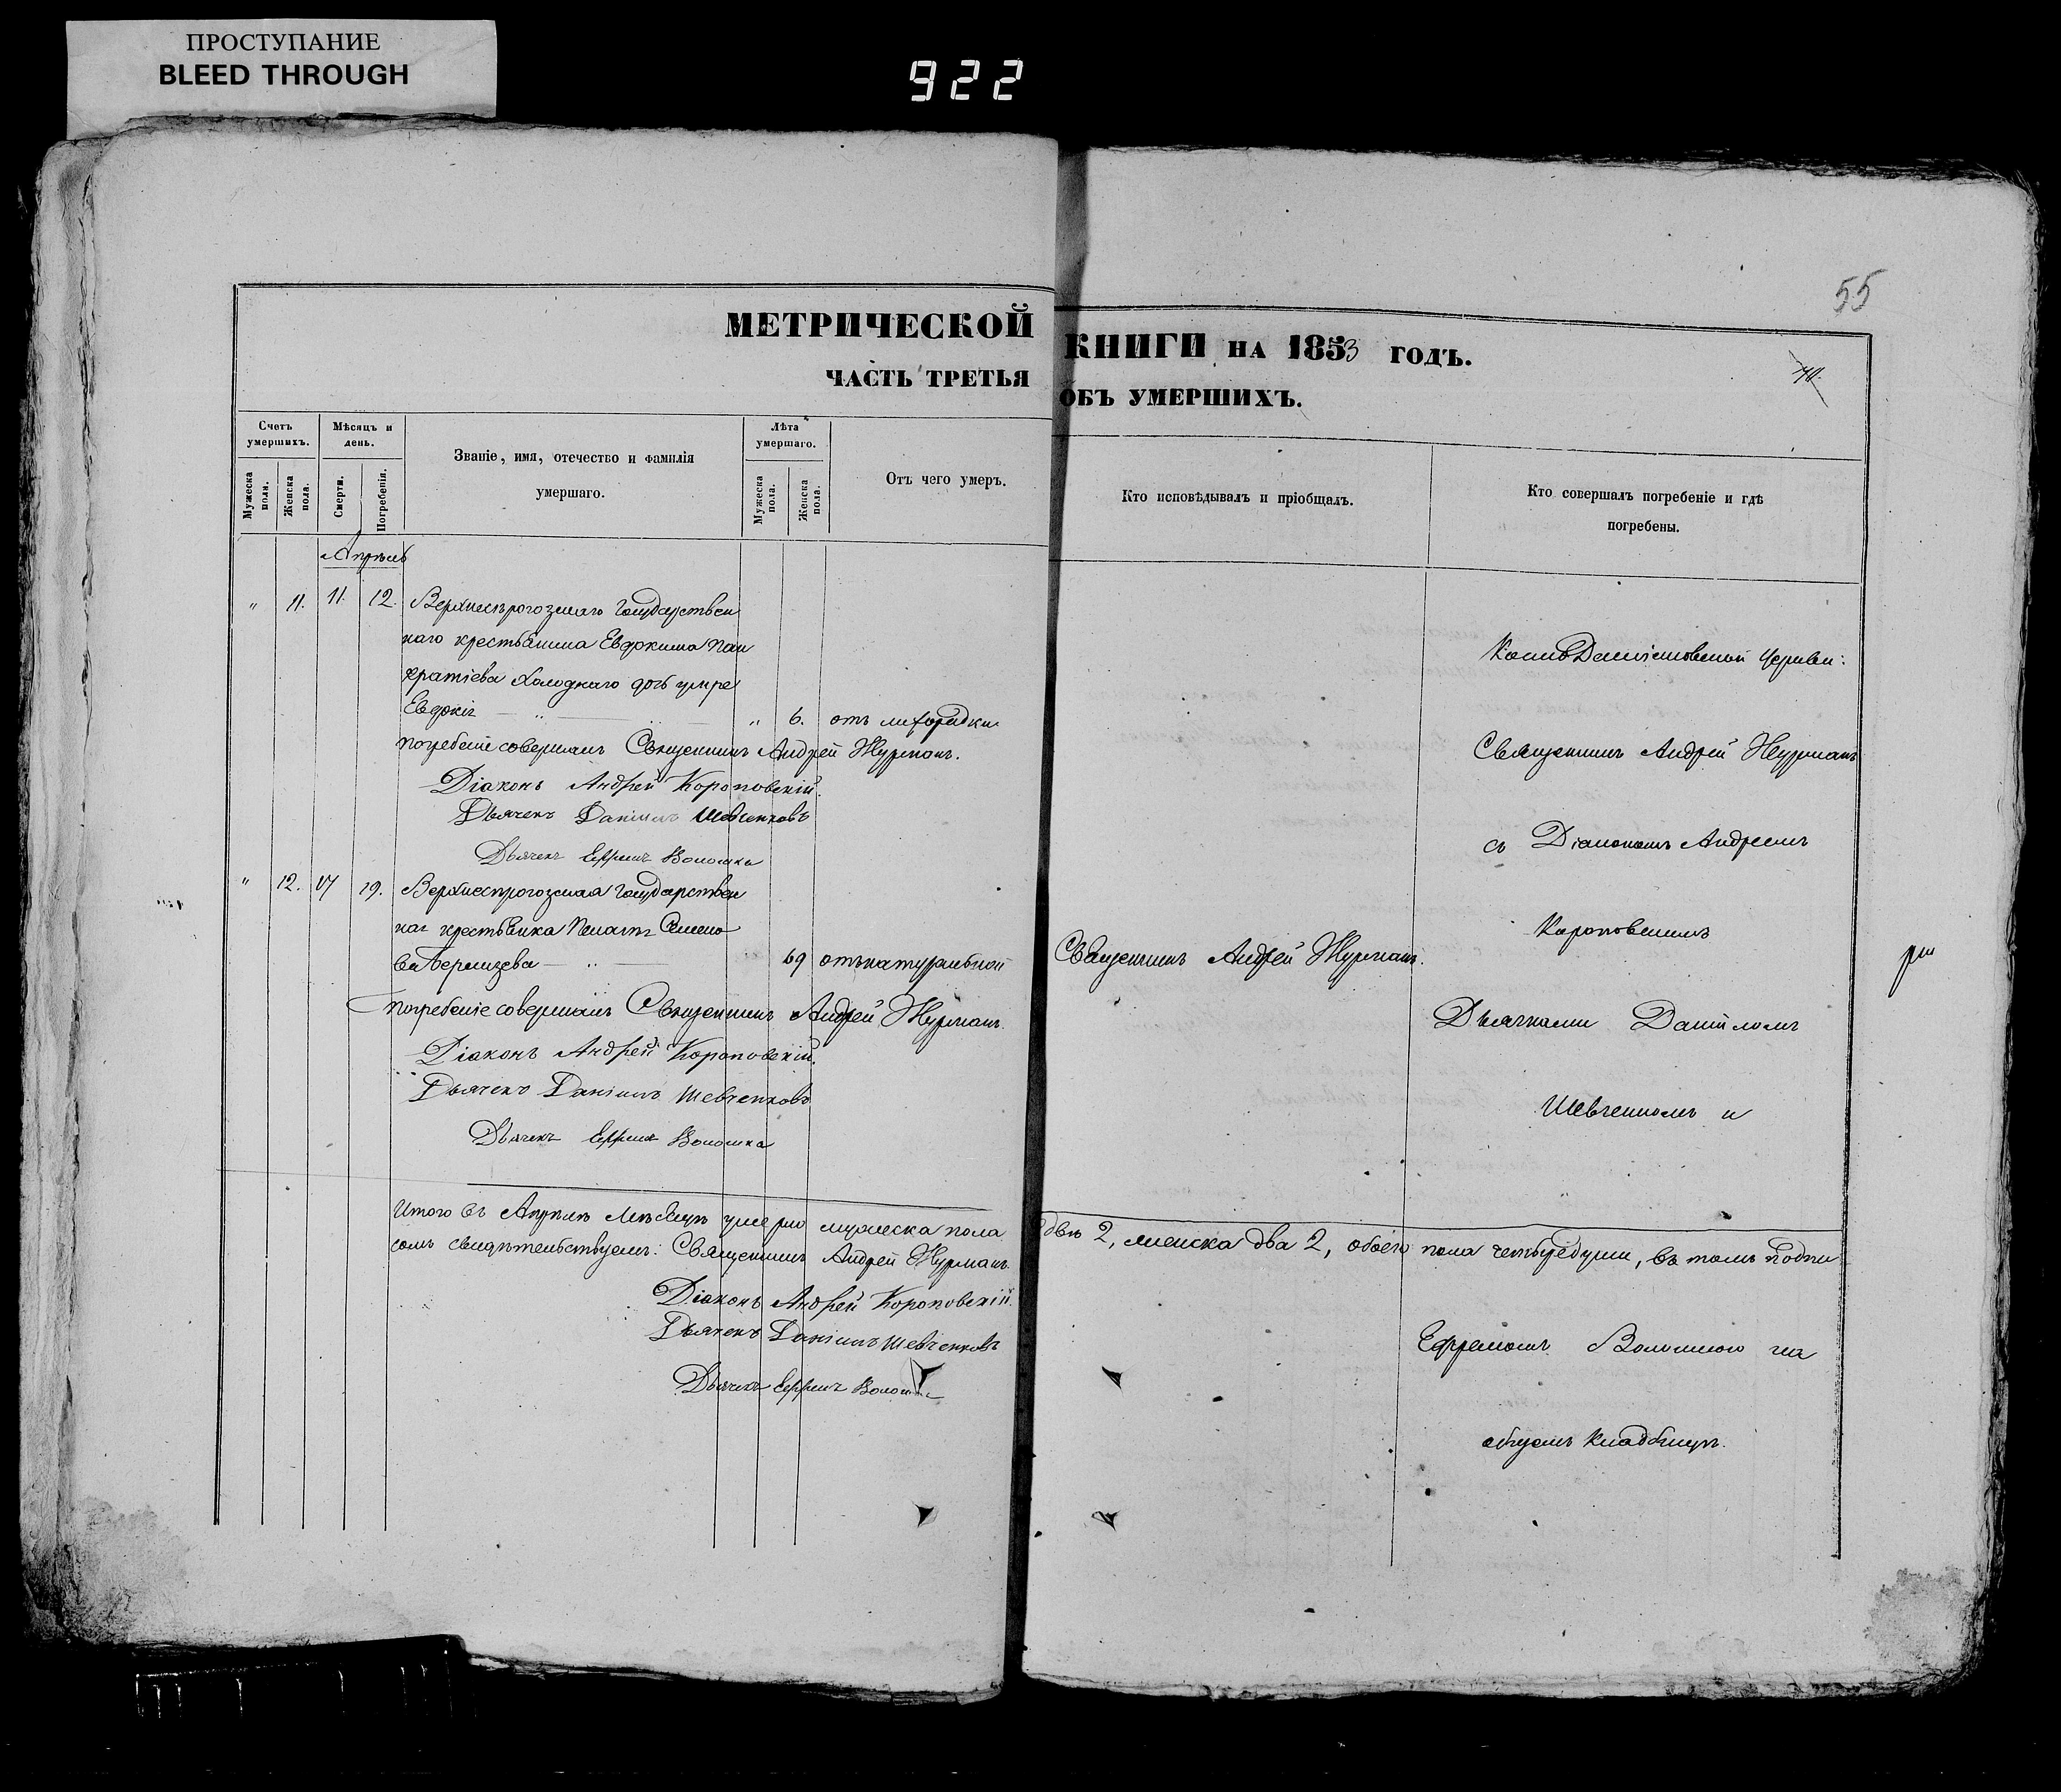 ПРОСТУПАНИЕ
BLEED THROUGH
922
55
МЕТРИЧЕСКОЙ КНИГИ НА 1853 ГОДЪ.
ЧАСТЬ ТРЕТЬЯ ОБЪ УМЕРШИХЪ.
Счетъ умершихъ.
Мужеска пола.
Женска пола.
Мѣсяцъ и день.
Смерти.
Погребенія.
Званіе, имя, отечество и фамилія
умершаго.
Лѣта умершаго.
Мужеска пола.
Женска пола.
Отъ чего умеръ.
Кто исповѣдывалъ и пріобщалъ.
Кто совершалъ погребеніе и гдѣ
погребены.
Апрѣль
" 11. 11. 12. Верхнерогозскаго Государствен
наго крестьянина Евдокима Пан
кратіева Холоднаго дочь умре
Евдокія " 6. отъ лихорадки
погребеніе совершалъ Священникъ Андрей Журманъ.
Діаконъ Андрей Короповскій.
Дьячекъ Даніилъ Шевченковъ
Дьячекъ Ефремъ Волошка
" 12. 17 19. Государствен
ная крестьянка Семено
ва 69 отъ натуральной
Священникъ Андрей Журманъ.
погребеніе совершалъ Священникъ Андрей Журманъ.
Діаконъ Андрей Короповскій.
Дьячекъ Даніилъ Шевченковъ
Дьячекъ Ефремъ Волошка
Церкви:
Священникъ Андрей Журманъ
съ Діакономъ Андреемъ
Короповскимъ
Дьячками Даніиломъ
Шевченкомъ и
Итого въ Апрѣлѣ Мѣсяцѣ умерло мужеска пола двѣ 2, женска два 2, обоего пола четыре души, въ томъ подпи
сомъ свидѣтельствуемъ: Священникъ Андрей Журманъ.
Діаконъ Андрей Короповскій.
Дьячекъ Даніилъ Шевченковъ
Дьячекъ Ефремъ
Ефремомъ Волошкою на
общемъ кладбищѣ.